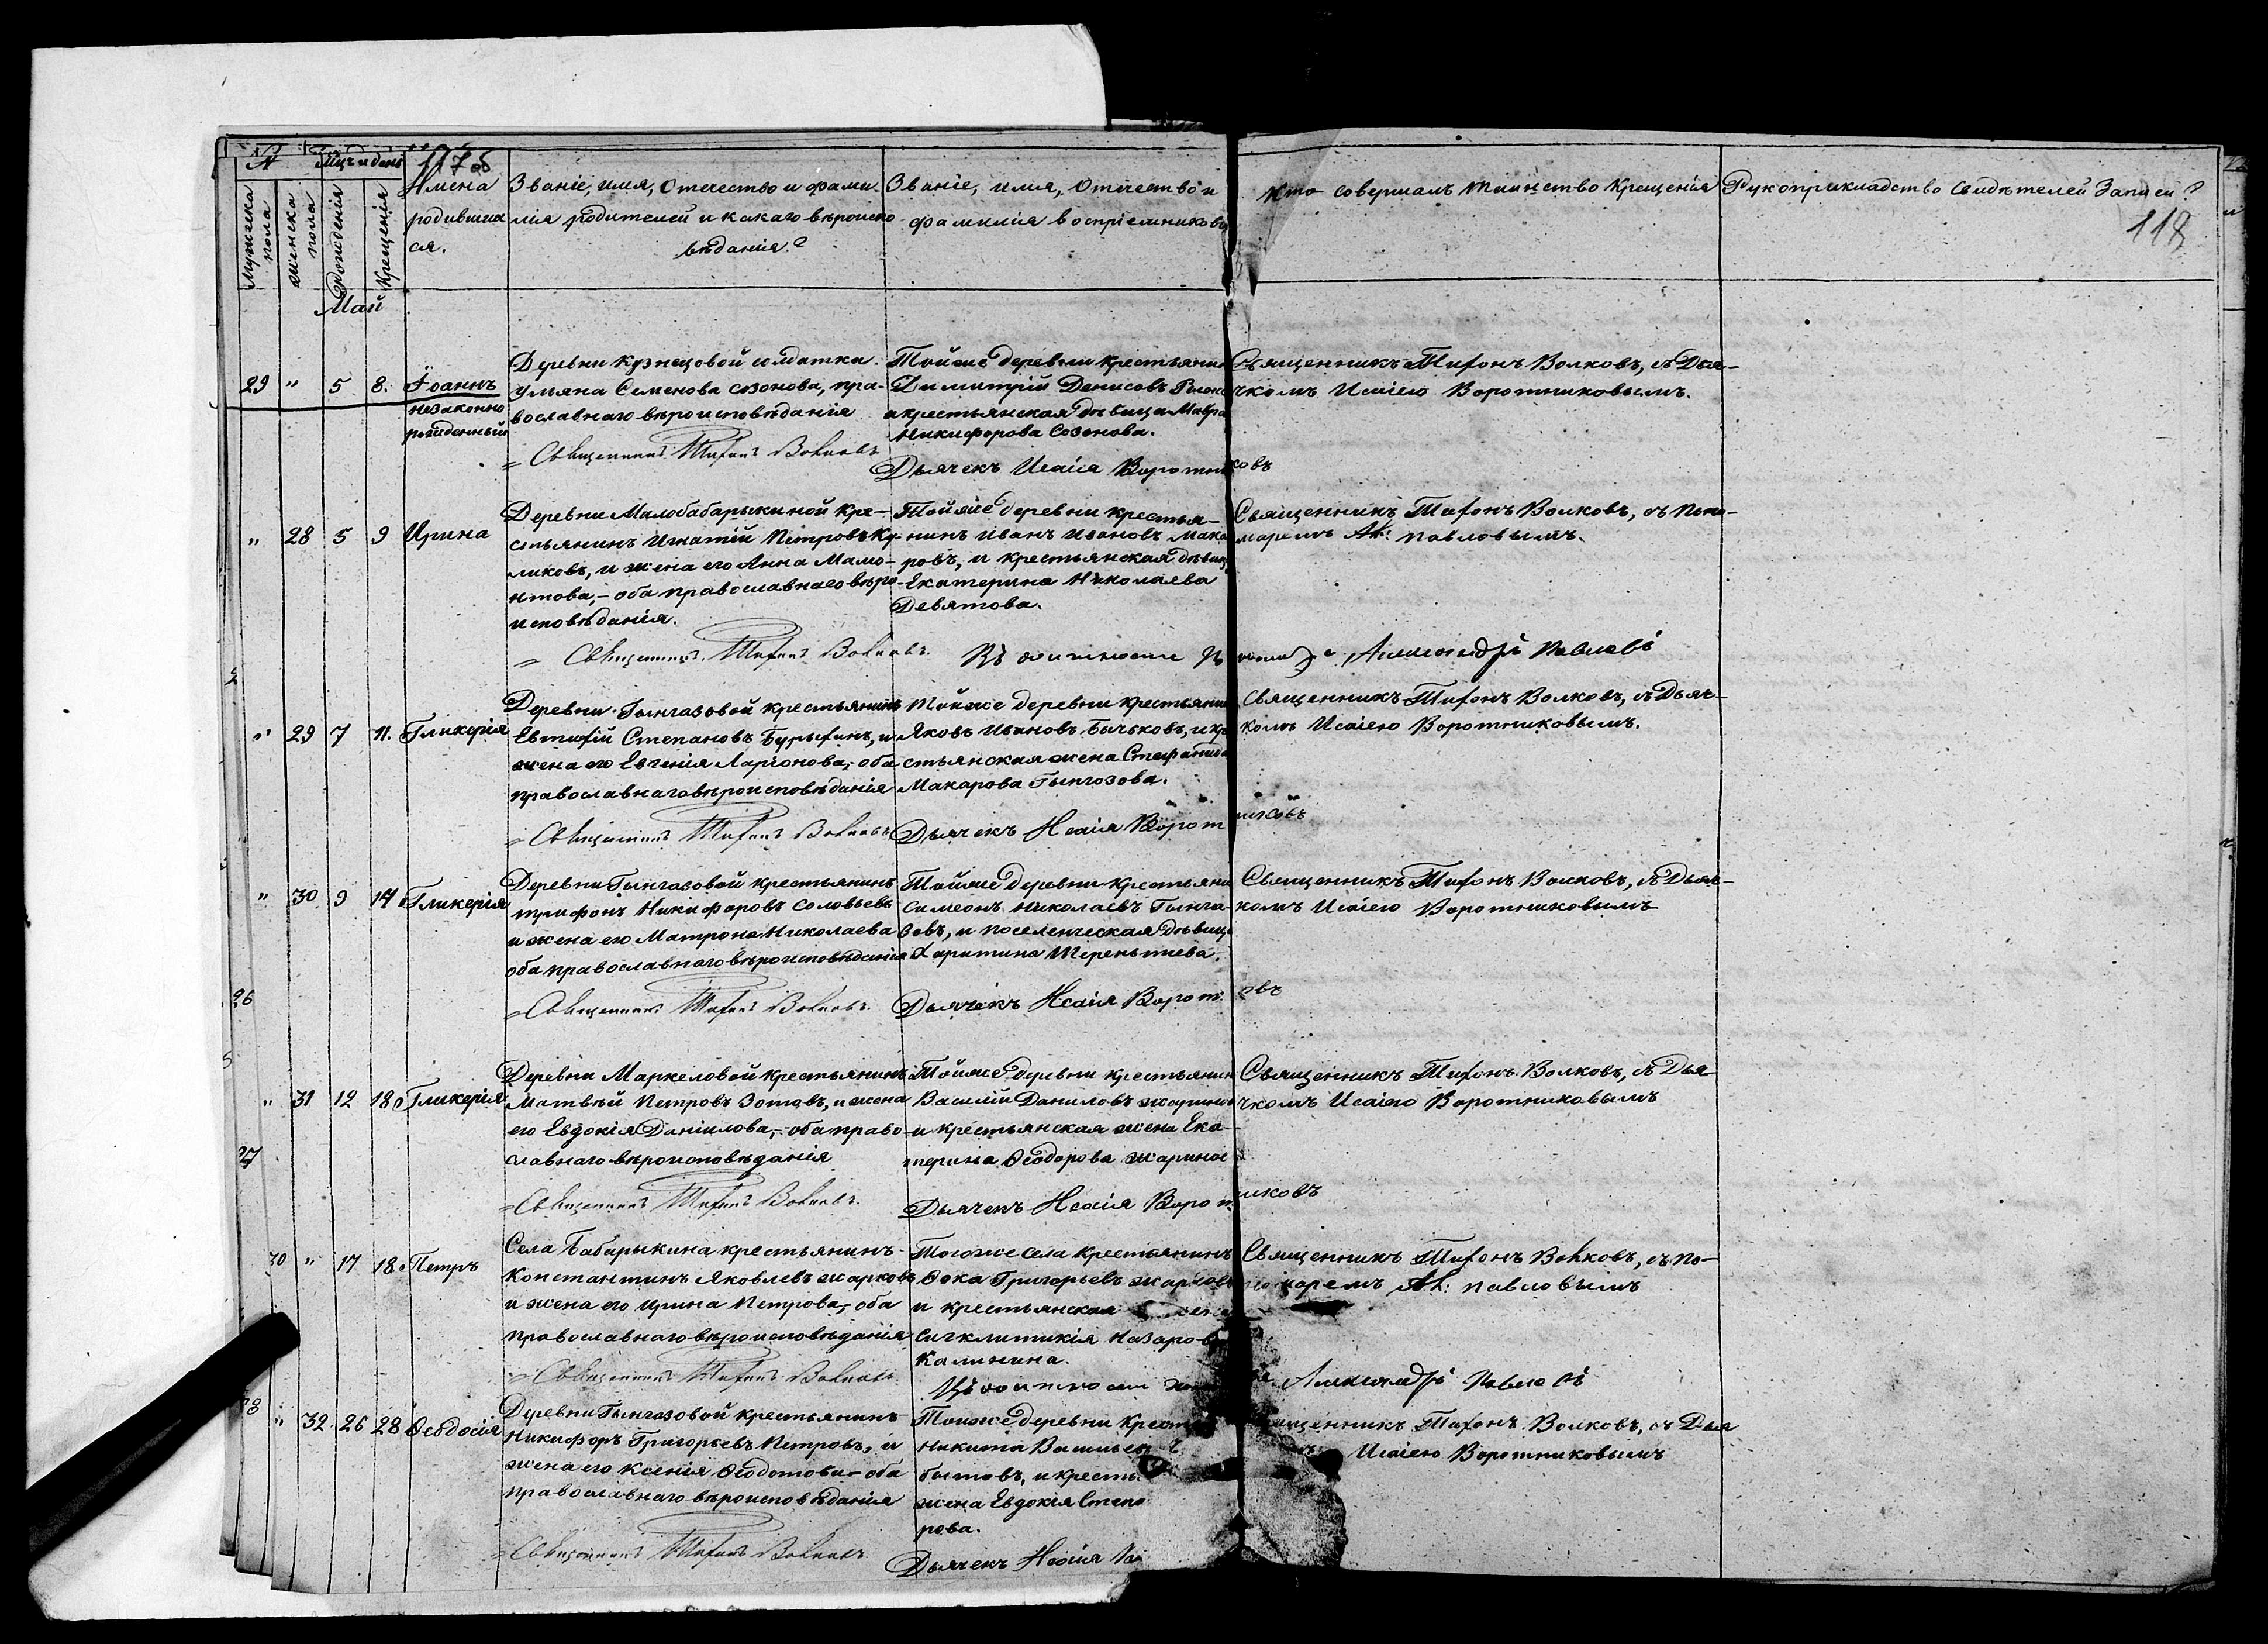 117 об
118
№ Мцъ и день
Мужеска пола
Женска пола
Рожденія
Крещенія
Имена
родивших
ся.
Званіе, имя, Отечество и фами-
лія родителей и какаго вѣроиспо
вѣданія?
Званіе, имя, Отечество и
фамилія воспріемниковъ
Кто совершалъ таинство Крещенія
Рукоприкладство свидѣтелей Записи?
Май
29 " 5 8. Іоаннъ
незаконно
рожденный
Деревни Кузнецовой солдатка
Ульяна Семенова Созонова, пра-
вославнаго вѣроисповѣданія
Священникъ Тифонъ Волковъ
Тойже деревни крестьянин
Димитрій Денисовъ
и крестьянская дѣвица Мавра
Никифорова Созонова.
Дьячекъ Исаія Воротниковъ
Священникъ Тифонъ Волковъ, съ Дья-
чкомъ Исаіею Воротниковымъ.
" 28 5 9 Ирина
Деревни Малобабарыкиной Кре-
стьянинъ Игнатій Петровъ Ку-
ликовъ, и жена его Анна Мамо-
нтова,- оба православнаго вѣро-
исповѣданія.
Священникъ Тифонъ Волковъ.
Тойже деревни крестья-
нинъ Иванъ Ивановъ Мака
ровъ, и крестьянская дѣвиц
Екатерина Николаева
Девятова.
Священникъ Тифонъ Волковъ, съ Поно-
маремъ Ал: Павловымъ.
Александръ Павловъ
" 29 7 11. Гликерія
Деревни Гынгазовой крестьянинъ
Евтифій Степановъ Бурыхинъ, и
жена его Евгенія Ларіонова,- оба
православнаго вѣроисповѣданія
Священникъ Тифонъ Волковъ
Тойже деревни крестьянин
Яковъ Ивановъ Бычковъ, и кре
стьянская жена Стефанида
Макарова Гынгозова.
Дьячекъ Исаія Воротниковъ
Священникъ Тифонъ Волковъ, съ Дьяч-
комъ Исаіею Воротниковымъ.
" 30 9 14 Гликерія
Деревни Гынгазовой крестьянинъ
Трифонъ Никифоровъ Соловьевъ
и жена его Матрона Николаева
оба православнаго вѣроисповѣданія
Священникъ Тифонъ Волковъ.
Тойже деревни крестьяни
Симеонъ Николаевъ Гынга-
зовъ, и поселенческая дѣвица
Харитина Терентьева.
Дьячекъ Исаія Ворот овъ
Священникъ Тифонъ Волковъ, съ Дьяч-
комъ Исаіею Воротниковымъ
26
" 31 12 18 Гликерія
Деревни Маркеловой крестьянинъ
Матвѣй Петровъ Зотовъ, и жена
его Евдокія Даніилова,- оба право-
славнаго вѣроисповѣданія
Священникъ Тифонъ Волковъ.
Тойже деревни крестьянин
Василій Даниловъ Жаринъ
и крестьянская жена Ека-
терина Ѳеодорова Жаринов
Дьячекъ Исаія Воротниковъ
Священникъ Тифонъ Волковъ, съ Дья
чкомъ Исаіею Воротниковымъ
27
30 " 17 18 Петръ
Села Бабарыкина крестьянинъ
Константинъ Яковлевъ Жарковъ
и жена его Ирина Петрова,- оба
православнаго вѣроисповѣданія
Священникъ Тифонъ Волковъ
Тогоже села крестьянинъ
Ѳока Григорьевъ Жарковъ
и крестьянская
Сигклитикія Назарова
Калинина.
Священникъ Тифонъ Волковъ, съ По-
номаремъ Ал: Павловымъ
Александръ Павловъ
" 32 26 28 Ѳеодосія
Деревни Гынгазовой крестьянинъ
Никифоръ Григорьевъ Петровъ, и
жена его Ксенія Ѳеодотова - оба
православнаго вѣроисповѣданія
Священникъ Тифонъ Волковъ
Тойже деревни Крест
Никита Василье
бытовъ, и кресть
жена Евдокія Степа
рова.
Дьячекъ Исаія
Священникъ Тифонъ Волковъ, съ Дья
Исаіею Воротниковымъ